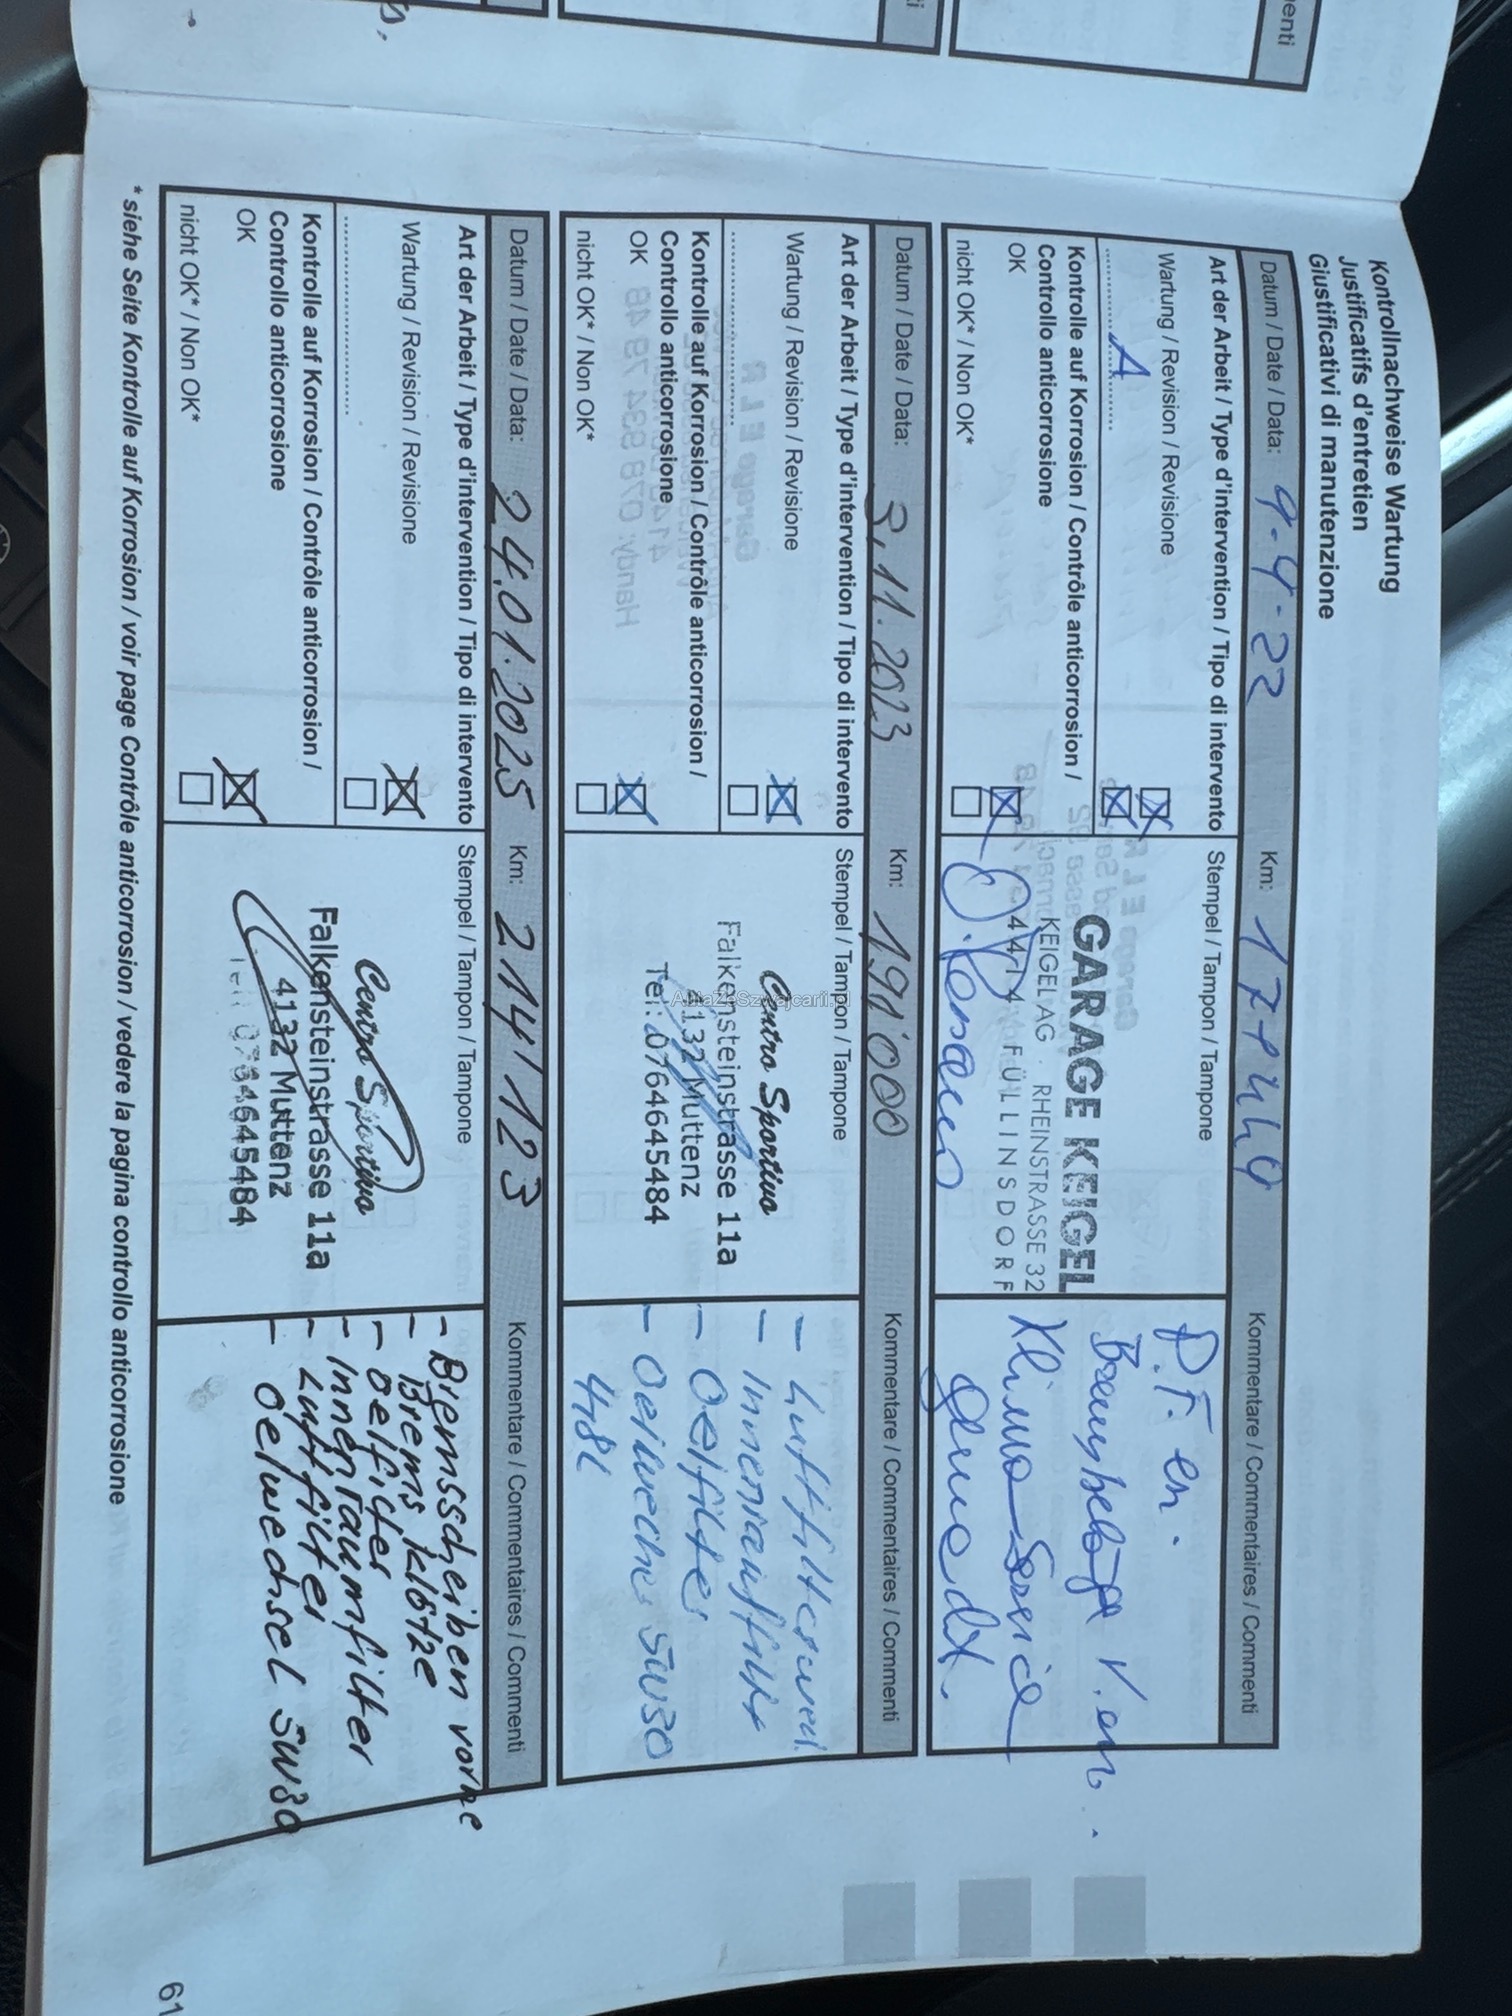 Kontrollnachweise Wartung
Justificatifs d'entretien
Giustificativi di manutenzione
Datum / Date / Data: 9.4.22 Km: Kommentare / Commentaires / Commenti
Art der Arbeit / Type d'intervention / Tipo di intervento Stempel / Tampon / Tampone
Wartung / Revision / Revisione
A
Kontrolle auf Korrosion / Contrôle anticorrosion /
Controllo anticorrosione
OK
nicht OK* / Non OK*
GARAGE KEIGEL
KEIGEL AG · RHEINSTRASSE 32
4414 FÜLLINSDORF
P.F. en.
Klima Service
gemacht.
Datum / Date / Data: 3.11.2023 Km: 191'000 Kommentare / Commentaires / Commenti
Art der Arbeit / Type d'intervention / Tipo di intervento Stempel / Tampon / Tampone
Wartung / Revision / Revisione
Kontrolle auf Korrosion / Contrôle anticorrosion /
Controllo anticorrosione
OK
nicht OK* / Non OK*
Centro Sportivo
Falkensteinstrasse 11a
4132 Muttenz
Tel: 0764645484
AutaZeSzwajcarii.pl
- Oelfilter
5W30
Datum / Date / Data: 24.01.2025 Km: 214'123 Kommentare / Commentaires / Commenti
Art der Arbeit / Type d'intervention / Tipo di intervento Stempel / Tampon / Tampone
Wartung / Revision / Revisione
Kontrolle auf Korrosion / Contrôle anticorrosion /
Controllo anticorrosione
OK
nicht OK* / Non OK*
Centro Sportivo
Falkensteinstrasse 11a
4132 Muttenz
Tel: 0764645484
- Bremsscheiben vorne
- Brems klötze
- oelfilter
- Innenraumfilter
- Luftfilter
- Oelwechsel 5W30
* siehe Seite Kontrolle auf Korrosion / voir page Contrôle anticorrosion / vedere la pagina controllo anticorrosione
61